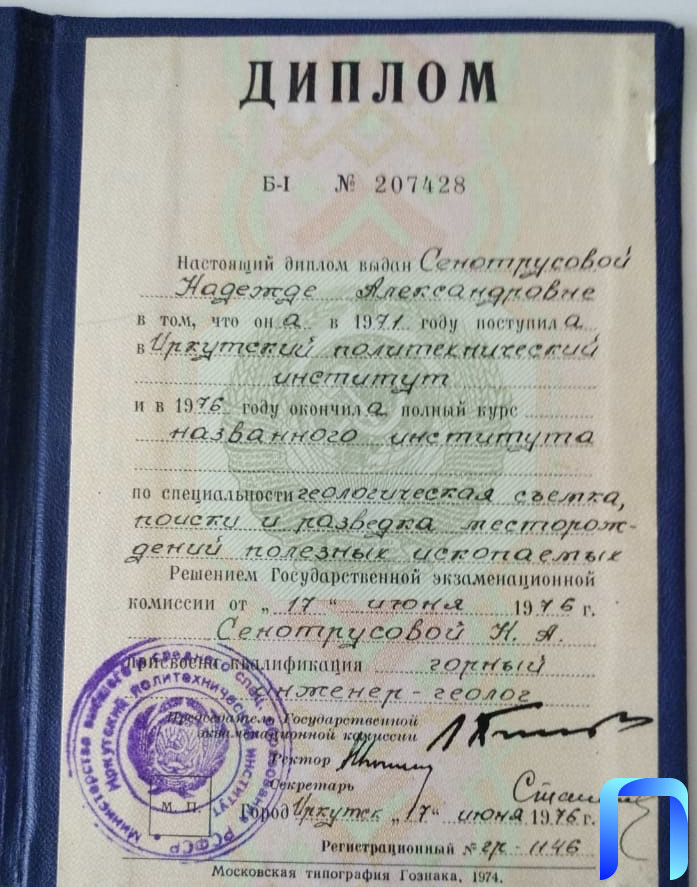 ДИПЛОМ
Б-I № 207428
Настоящий диплом выдан Сенотрусовой
Надежде Александровне
в том, что она в 1971 году поступила
в Иркутский политехнический
институт
и в 1976 году окончила полный курс
названного института
по специальности геологическая съемка,
поиски и разведка месторож-
дений полезных ископаемых
Решением Государственной экзаменационной
комиссии от „17“ июня 1976 г.
Сенотрусовой Н. А.
присвоена квалификация горный
инженер-геолог
Председатель Государственной
экзаменационной комиссии
Ректор
Секретарь
М. П.
Город Иркутск „17“ июня 1976 г.
Регистрационный № гр-1146
Московская типография Гознака, 1974.
Министерство высшего и среднего спец. образования РСФСР
Иркутский политехнический институт